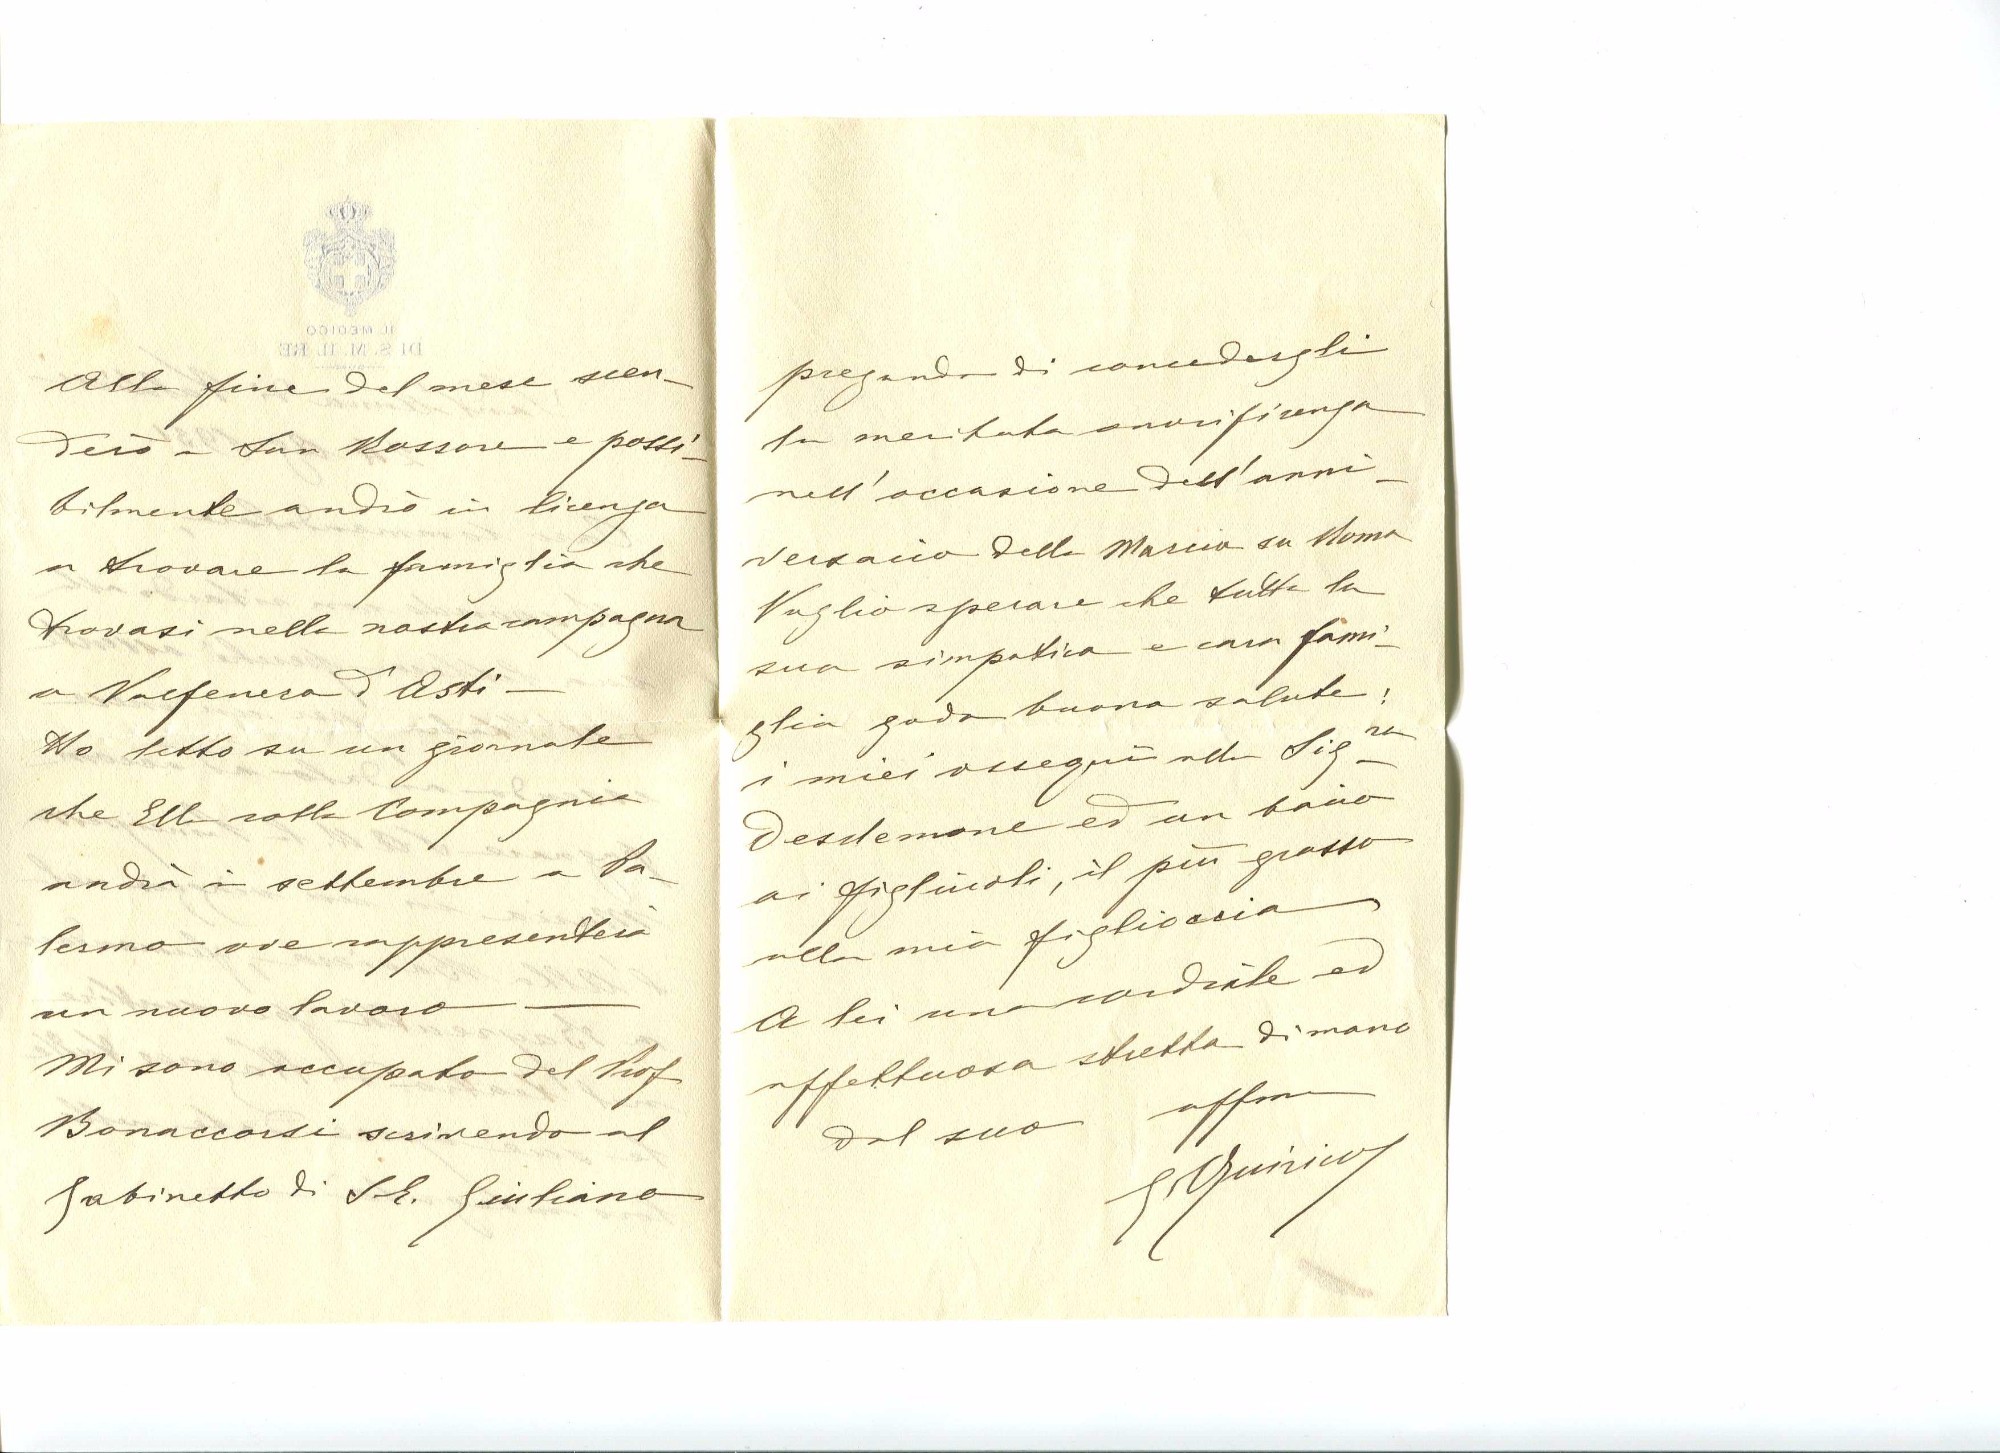 IL MEDICO
DI S. M. IL RE
Alla fine del mese scen-
derò a San Rossore e possi-
bilmente andrò in licenza
a trovare la famiglia che
trovasi nella nostra campagna
a Valfenera d'Asti —
Ho letto su un giornale
che Ella colla Compagnia
andrà in settembre a Pa-
lermo ove rappresenterà
un nuovo lavoro —
Mi sono occupato del Prof
Bonaccorsi scrivendo al
Gabinetto di S.E. Giuliano
pregando di concedergli
la meritata onorificenza
nell'occasione dell'anni-
versario della Marcia su Roma
Voglio sperare che tutta la
sua simpatica e cara fami-
glia goda buona salute:
i miei ossequii alla Sig.ra
Desdemone ed un bacio
ai figliuoli, il più grosso
alla mia figlioccia
A lei una cordiale ed
affettuosa stretta di mano
dal suo affmo
G. Quirico